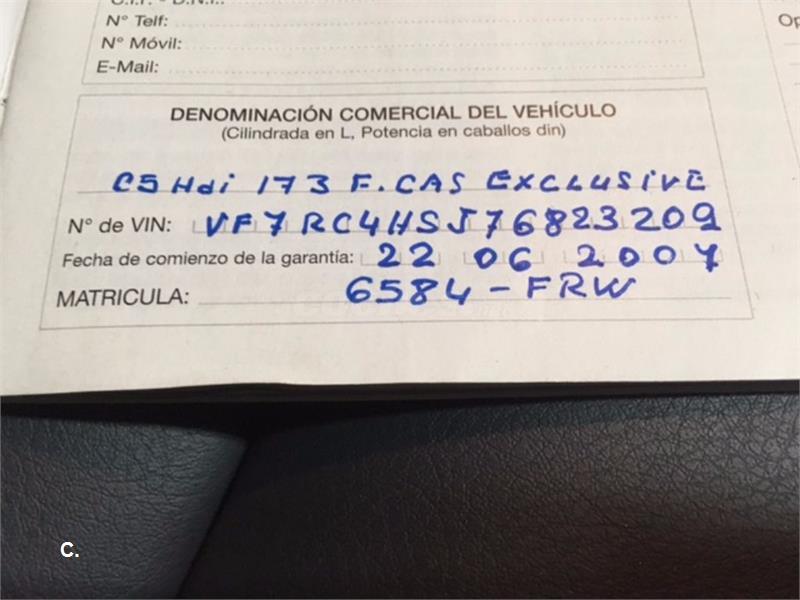 C.I.F. - D.N.I.:
Nº Telf:
Nº Móvil:
E-Mail:
Op
DENOMINACIÓN COMERCIAL DEL VEHÍCULO
(Cilindrada en L, Potencia en caballos din)
C5 Hdi 173 F. CAS EXCLUSIVE
Nº de VIN: VF7RC4HSJ76823209
Fecha de comienzo de la garantía: 22 06 2007
MATRICULA: 6584-FRW
C.